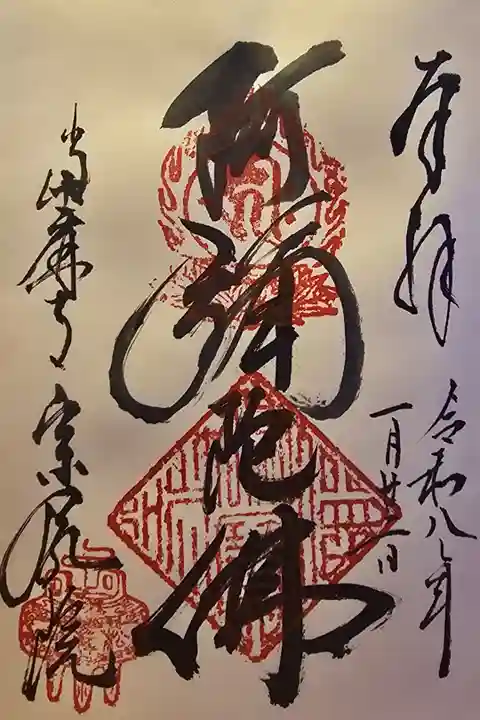 奉拝
令和八年
一月廿一日
阿弥陀佛
當麻寺 宗胤院